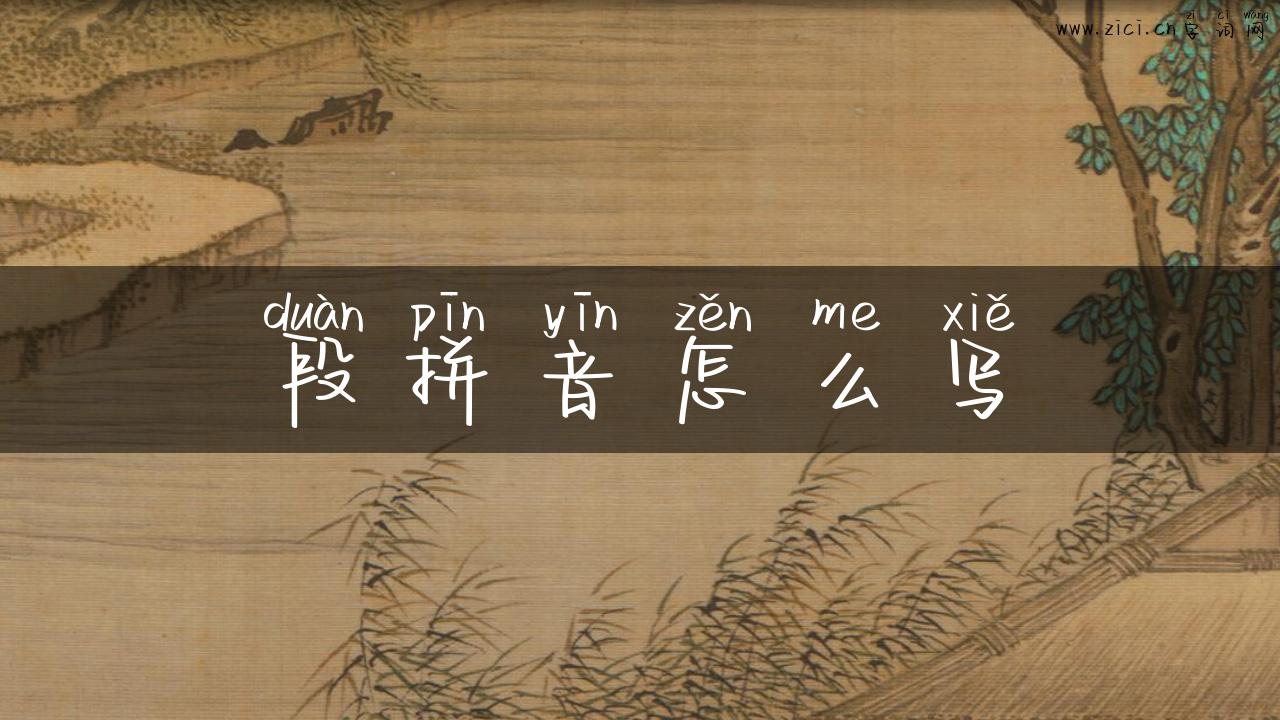 zì cí wǎng
www.zici.cn字词网
duàn pīn yīn zěn me xiě
段拼音怎么写